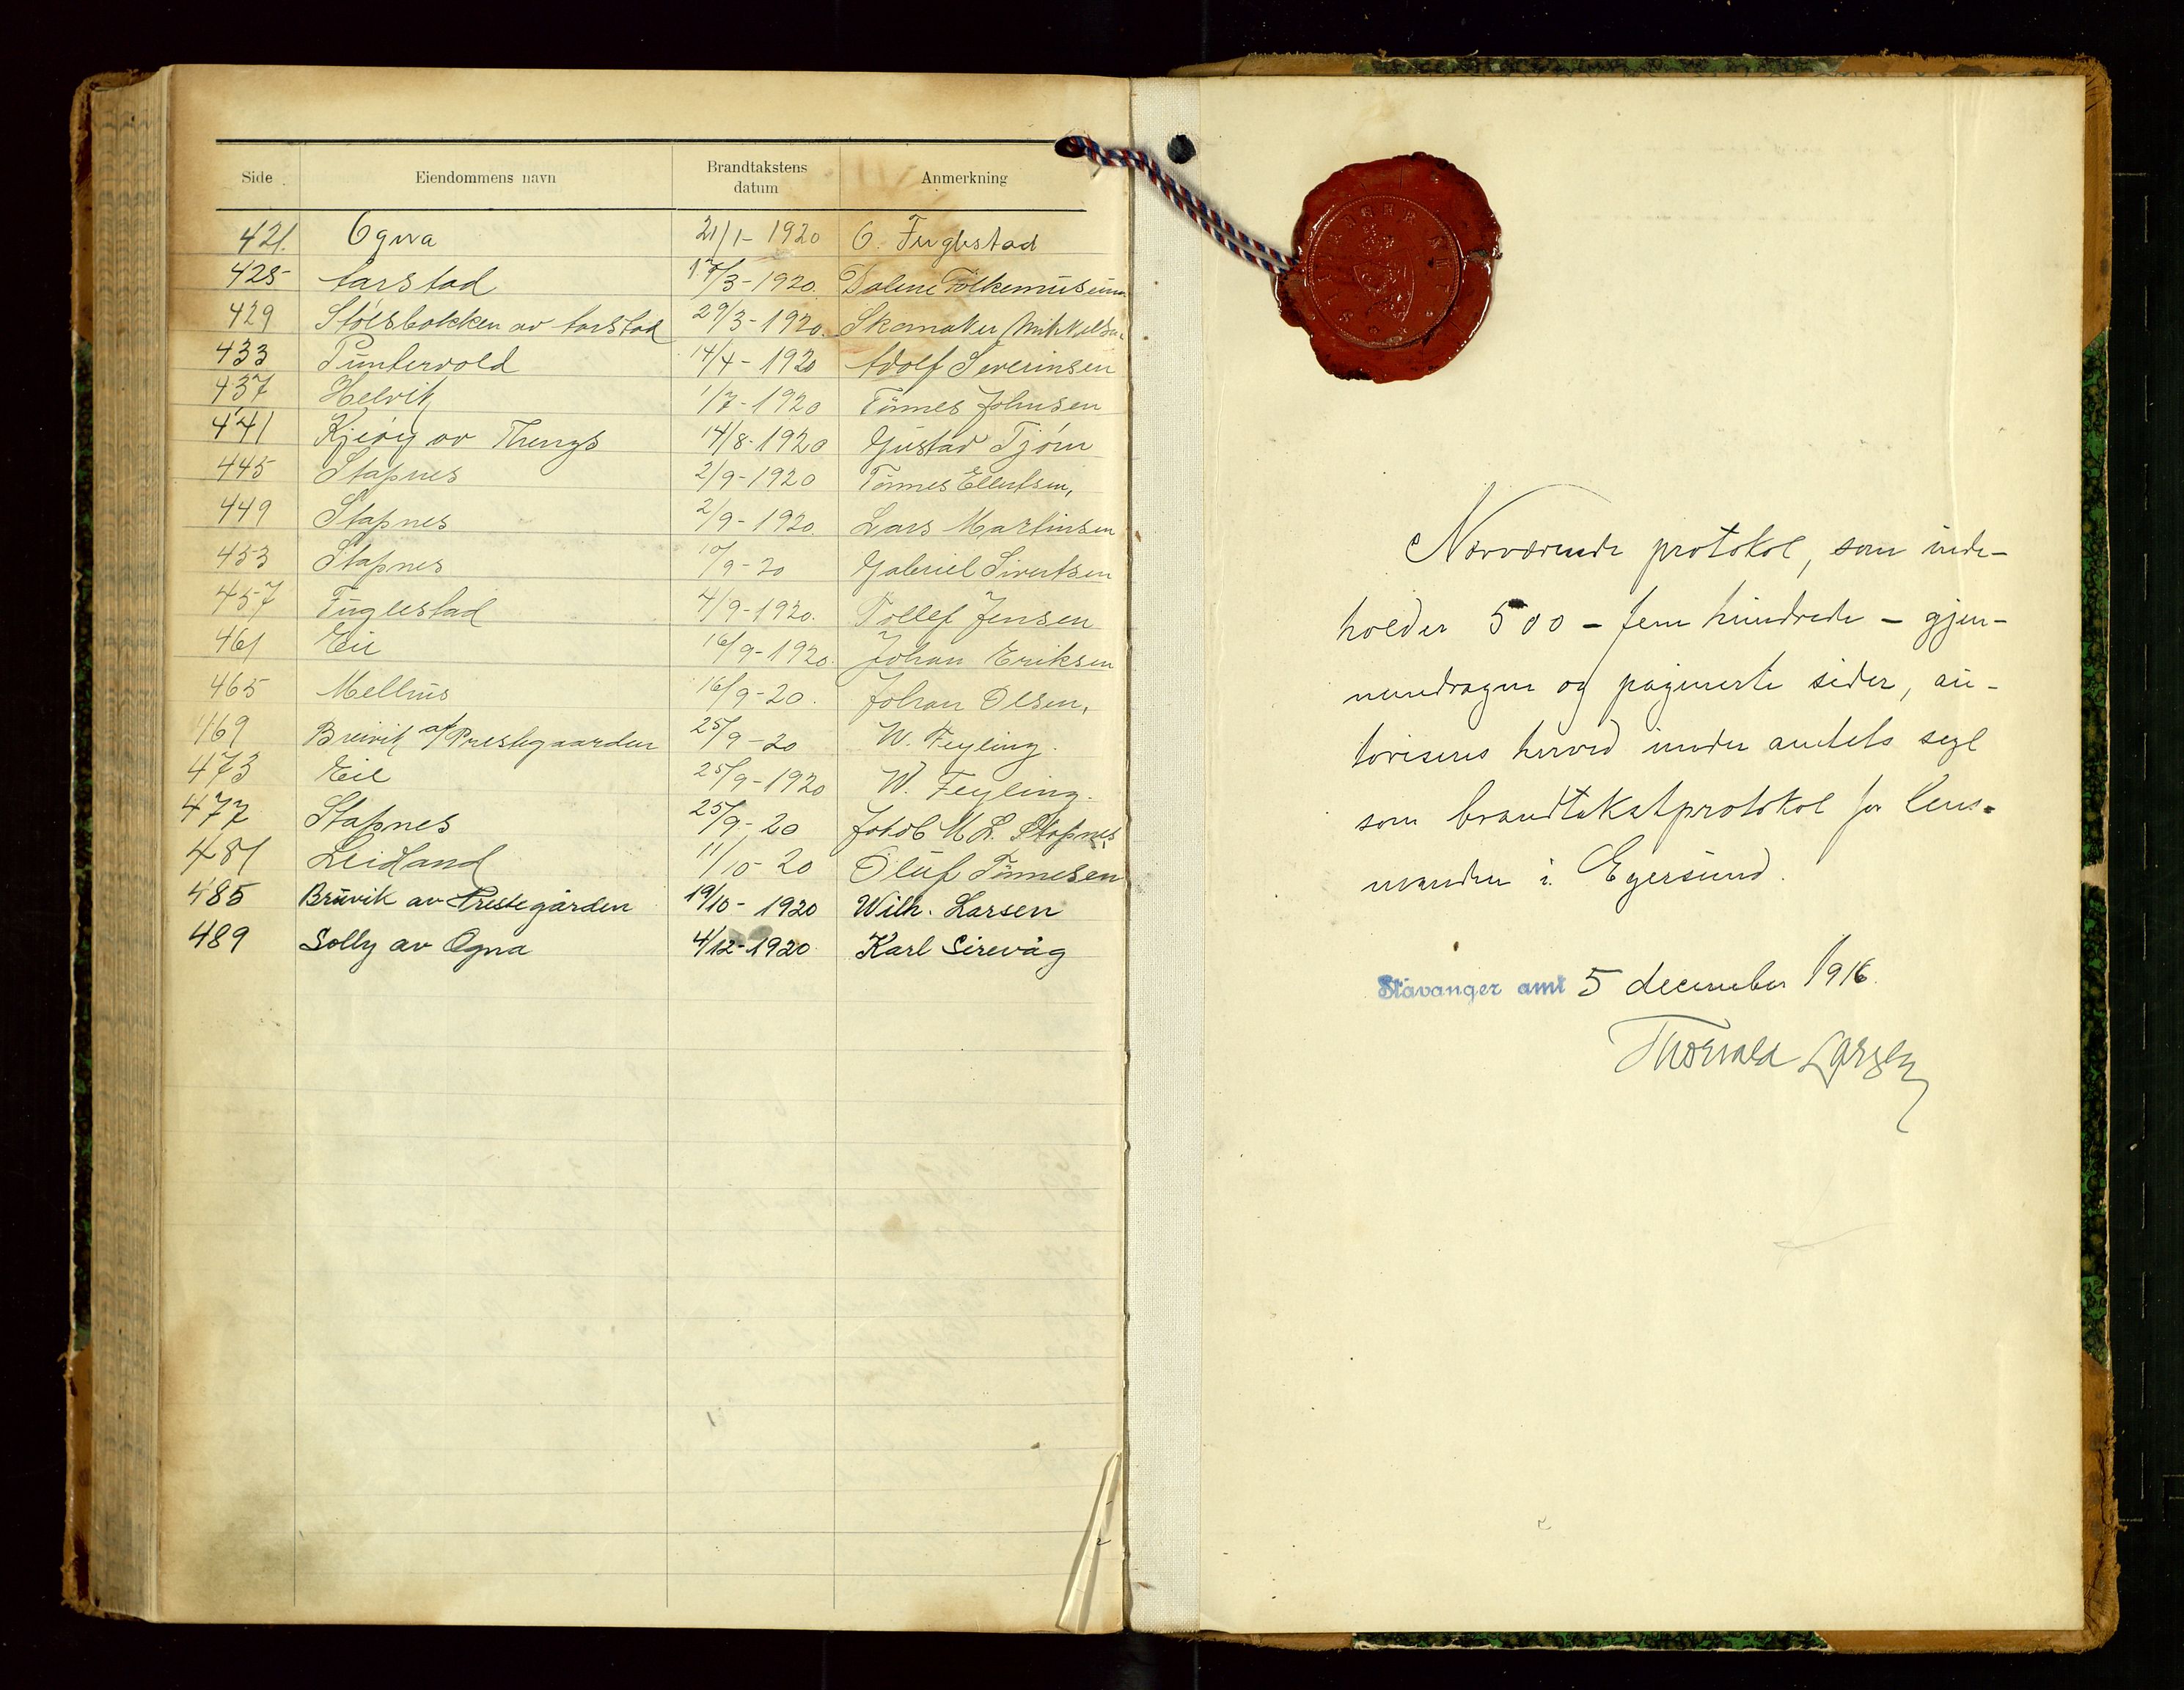 Side Eiendommens navn Brandtakstens datum Anmerkning
421. Ogna 21/1- 1920 O. Fuglestad
425 Aarstad 17/3-1920. Dalene Folkemuseum
429 Stölsbakken av Aarstad 29/3-1920. Skomaker Mikkelsen
433 Puntervold 14/4-1920 Adolf Severinsen
437 Helvik 1/7-1920 Tönnes Johnsen
441 Kjeöy av Thengs 14/8-1920 Gustav Tjörn
445 Stapnes 2/9-1920 Tönnes Ellertsen,
449 Stapnes 2/9-1920. Lars Martinsen
453 Stapnes 10/9-20 Gabriel Sivertsen
457 Fuglestad 4/9-1920. Tollef Jensen
461 Eie 16/9-1920. Johan Eriksen
465 Mellhus 16/9-20. Johan Olsen,
469 Breivik af Prestegaarden 25/9-20 W. Feyling.
473 Eie 25/9-1920 W. Feyling.
477 Stapnes 25/9-20 Jakob M L. Stapnes
481 Leidland 11/10-20 Oluf Tönnesen
485 Bruvik av Prestegården 19/10-1920 Wilh. Larsen
489 Solly av Ogna 4/12-1920. Karl Sirevåg
STAVANGER AMT
Nærværende protokol, som inde-
holder 500 - fem hundrede - gjen-
nemdragne og paginerte sider, au-
toriseres herved under amtets segl
som brandtakstprotokol for lens-
manden i Egersund.
Stavanger amt 5 december 1916.
Thorvald Larsen